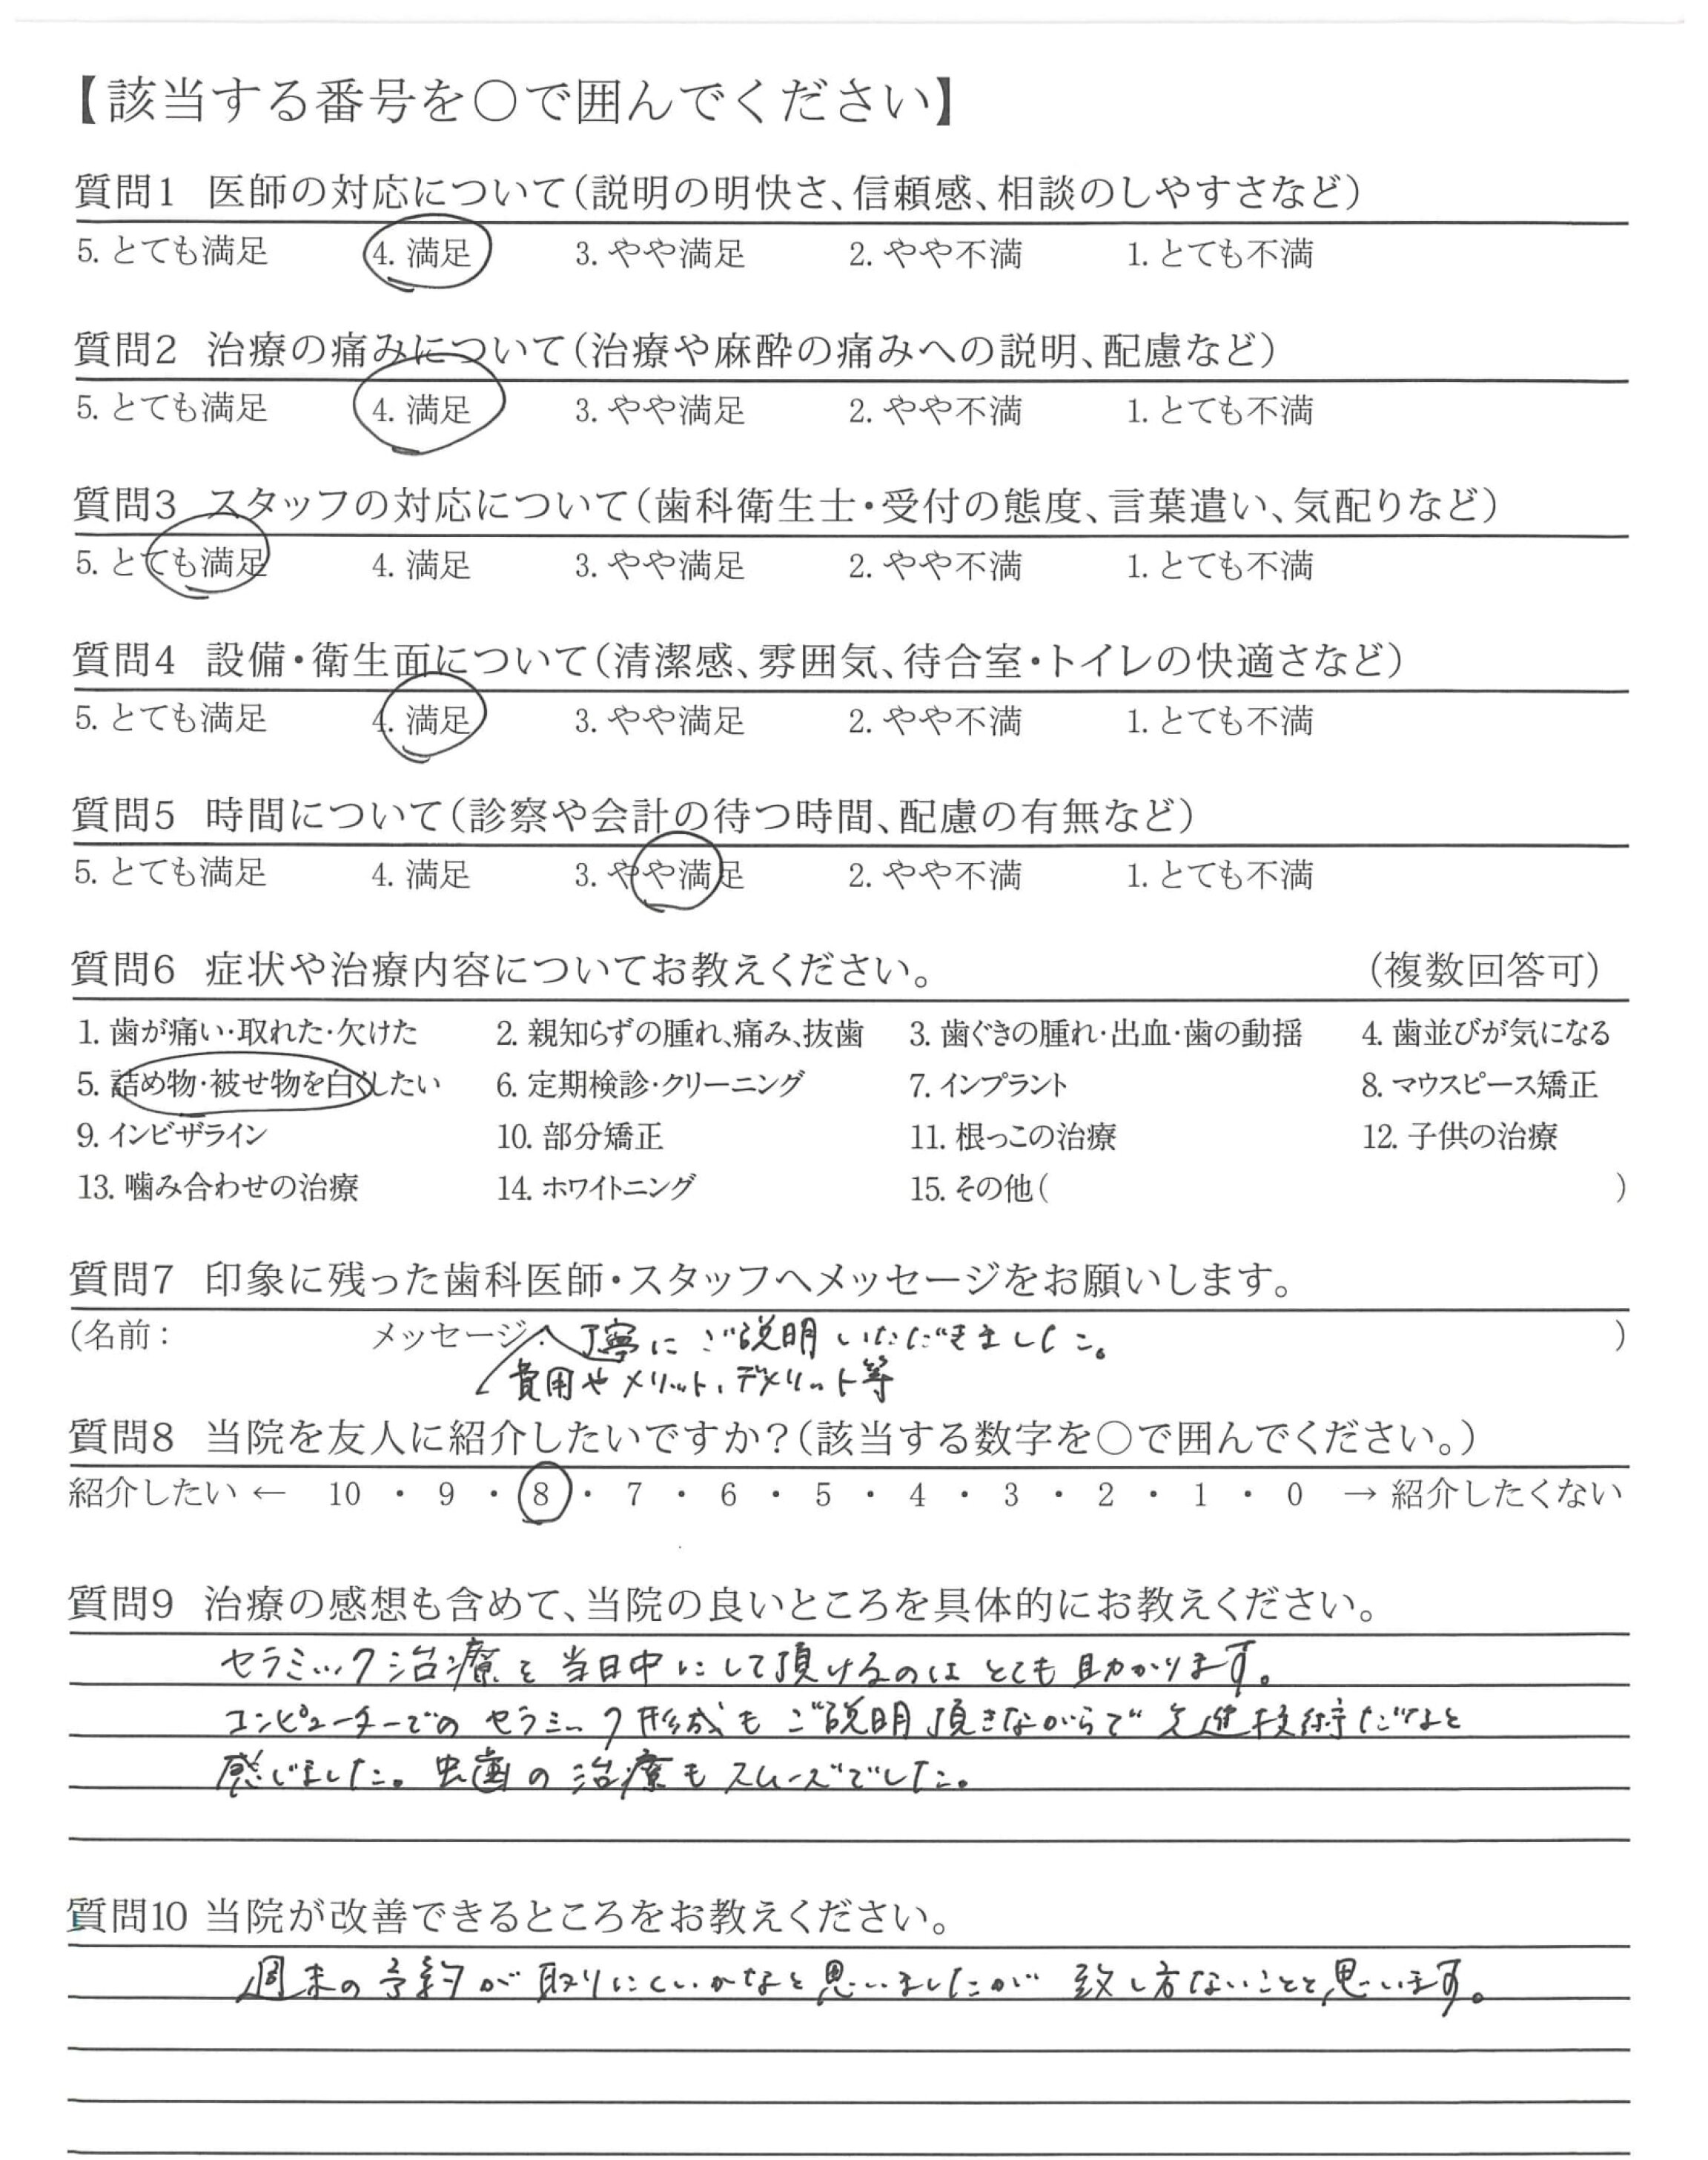 【該当する番号を○で囲んでください】
質問1 医師の対応について(説明の明快さ、信頼感、相談のしやすさなど)
5. とても満足 4. 満足 3. やや満足 2. やや不満 1. とても不満
質問2 治療の痛みについて(治療や麻酔の痛みへの説明、配慮など)
5. とても満足 4. 満足 3. やや満足 2. やや不満 1. とても不満
質問3 スタッフの対応について(歯科衛生士・受付の態度、言葉遣い、気配りなど)
5. とても満足 4. 満足 3. やや満足 2. やや不満 1. とても不満
質問4 設備・衛生面について(清潔感、雰囲気、待合室・トイレの快適さなど)
5. とても満足 4. 満足 3. やや満足 2. やや不満 1. とても不満
質問5 時間について(診察や会計の待つ時間、配慮の有無など)
5. とても満足 4. 満足 3. やや満足 2. やや不満 1. とても不満
質問6 症状や治療内容についてお教えください。 (複数回答可)
1. 歯が痛い・取れた・欠けた 2. 親知らずの腫れ、痛み、抜歯 3. 歯ぐきの腫れ・出血・歯の動揺 4. 歯並びが気になる
5. 詰め物・被せ物を白くしたい 6. 定期検診・クリーニング 7. インプラント 8. マウスピース矯正
9. インビザライン 10. 部分矯正 11. 根っこの治療 12. 子供の治療
13. 噛み合わせの治療 14. ホワイトニング 15. その他( )
質問7 印象に残った歯科医師・スタッフへメッセージをお願いします。
(名前: メッセージ: 丁寧にご説明いただきました。 )
費用やメリット、デメリット等
質問8 当院を友人に紹介したいですか?(該当する数字を○で囲んでください。)
紹介したい ← 10 ・ 9 ・ 8 ・ 7 ・ 6 ・ 5 ・ 4 ・ 3 ・ 2 ・ 1 ・ 0 → 紹介したくない
質問9 治療の感想も含めて、当院の良いところを具体的にお教えください。
セラミック治療を当日中にして頂けるのはとても助かります。
コンピューターでのセラミック形成もご説明頂きながらで先進技術だなと
感じました。虫歯の治療もスムーズでした。
質問10 当院が改善できるところをお教えください。
週末の予約が取りにくいかなと思いましたが致し方ないことと思います。